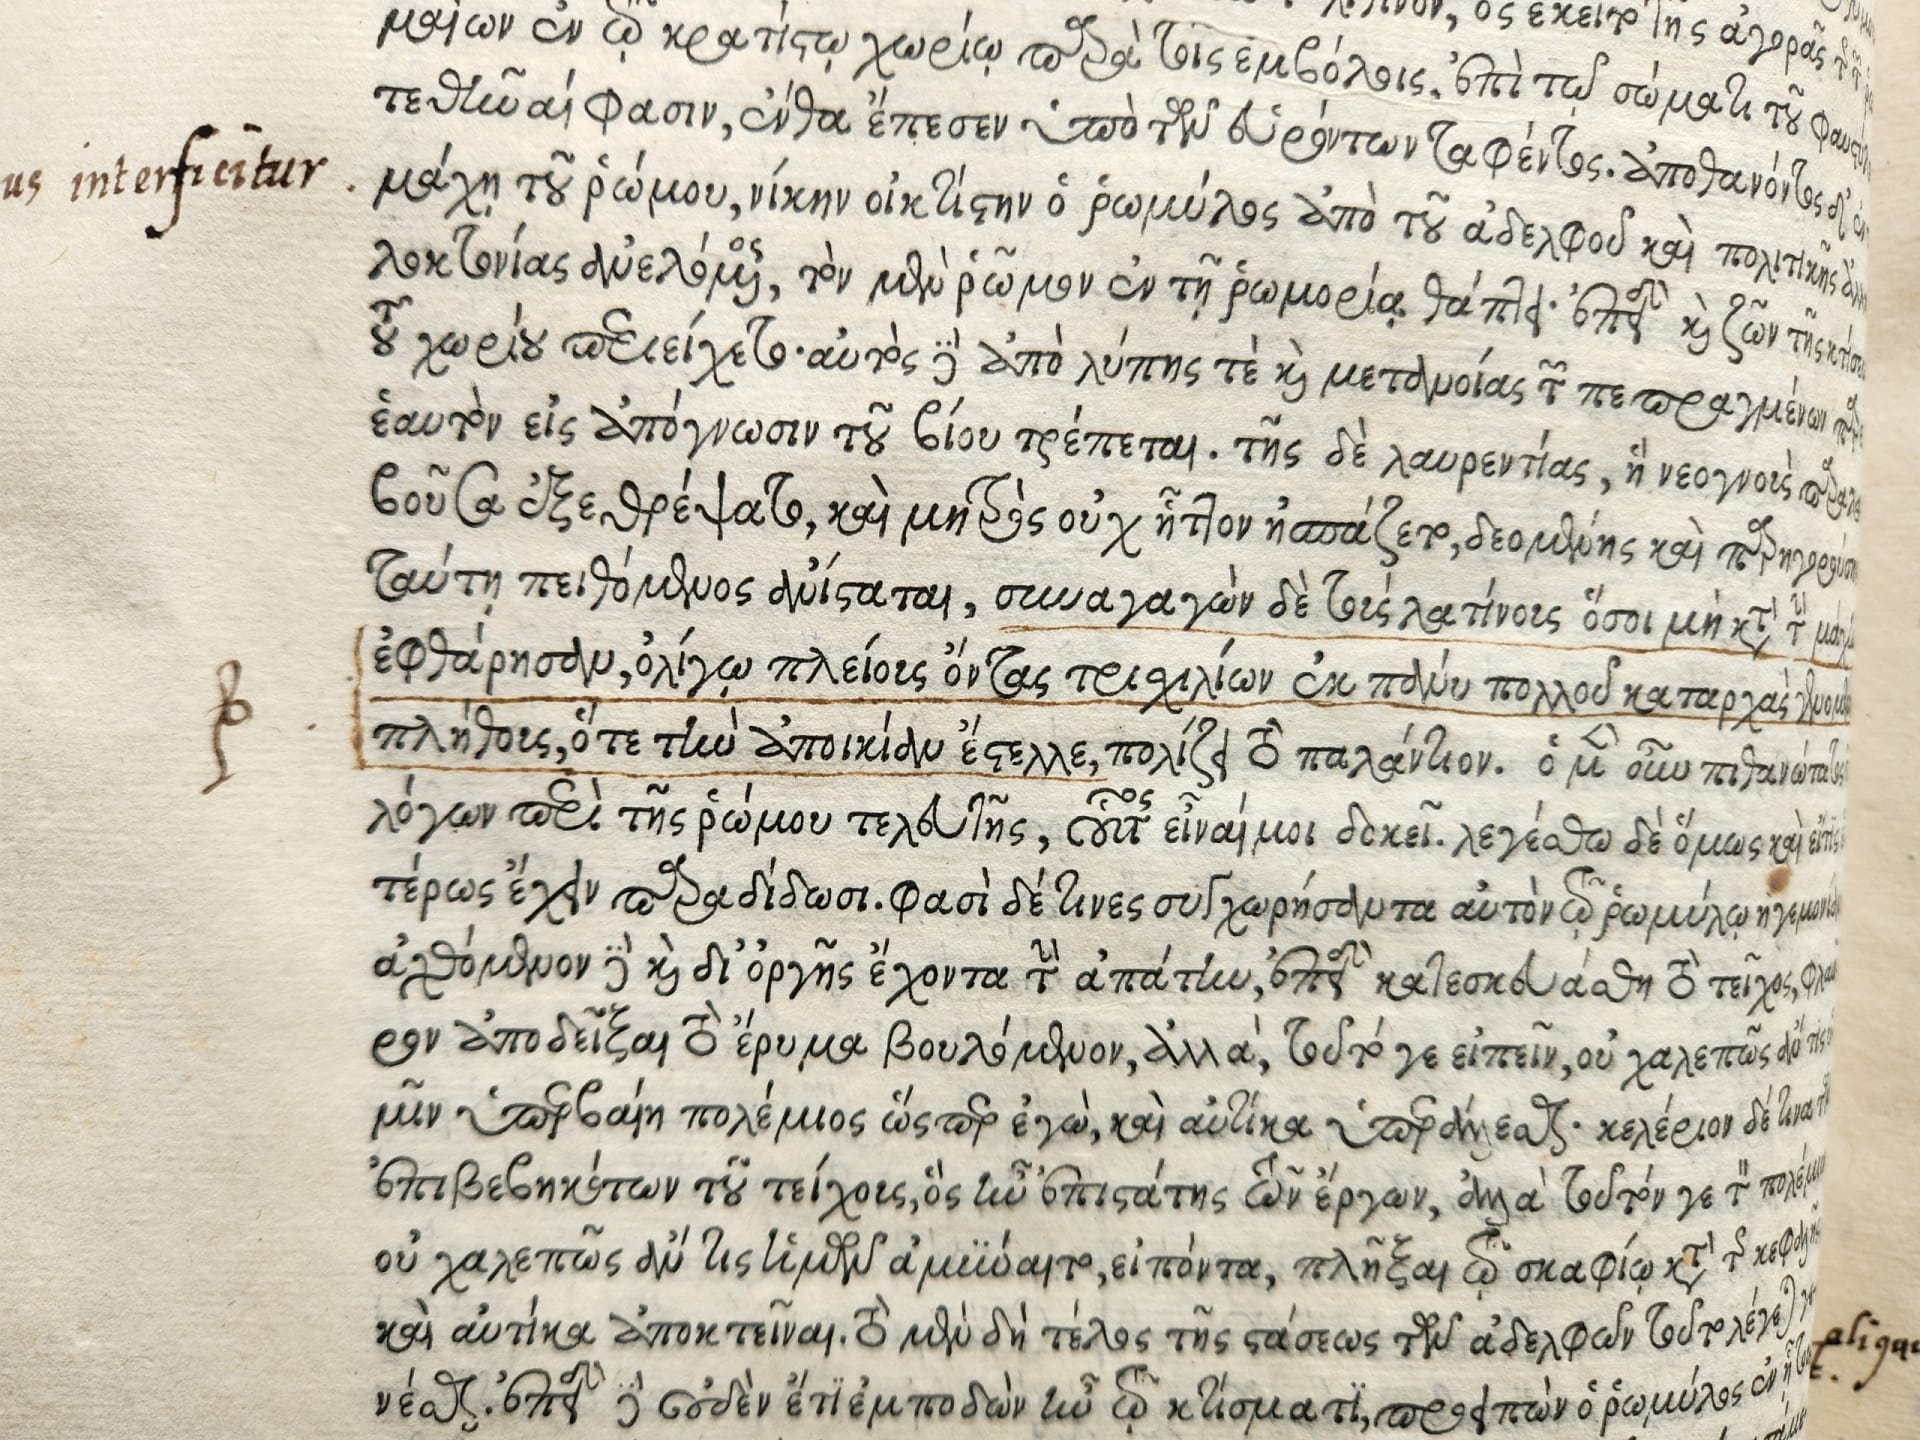 ὃς ἐκεῖτο τῆς ἀγορᾶς
μαίων ἐν τῷ κρατίστῳ χωρίῳ παρὰ τοῖς ἐμβόλοις, ἐπὶ τῷ σώματι τοῦ φαυστύλου
τεθῆναί φασιν, ἔνθα ἔπεσεν ὑπὸ τῶν εὑρόντων ταφέντος. ἀποθανόντος δ' ἐν
us interficitur.
μάχῃ τοῦ ῥώμου, νίκην οἰκτίστην ὁ ῥωμύλος ἀπὸ τοῦ ἀδελφοῦ καὶ πολιτικῆς ἀλλη
λοκτονίας ἀνελόμενος, τὸν μὲν ῥῶμον ἐν τῇ ῥωμορίᾳ θάπτει· ἐπειδὴ καὶ ζῶν τῆς κτίσεως
τοῦ χωρίου περιείχετο· αὐτὸς δὲ ἀπὸ λύπης τὲ καὶ μετανοίας τῶν πεπραγμένων παρεὶς
ἑαυτὸν εἰς ἀπόγνωσιν τοῦ βίου τρέπεται. τῆς δὲ λαυρεντίας, ἣ νεογνοὺς παραλα
βοῦσα ἐξεθρέψατο, καὶ μητρὸς οὐχ ἧττον ἠσπάζετο, δεομένης καὶ παρηγορούσης
ταύτῃ πειθόμενος ἀνίσταται, συναγαγὼν δὲ τοὺς λατίνους ὅσοι μὴ κατὰ τὴν μάχην
ἐφθάρησαν, ὀλίγῳ πλείους ὄντας τρισχιλίων ἐκ πάνυ πολλοῦ καταρχὰς γενομένου
πλήθους, ὅτε τὴν ἀποικίαν ἔστελλε, πολίζει τὸ παλάντιον. ὁ μὲν οὖν πιθανώτατος
λόγων περὶ τῆς ῥώμου τελευτῆς, οὗτος εἶναί μοι δοκεῖ. λεγέσθω δὲ ὅμως καὶ εἴ τις
τέρως ἔχειν παραδίδωσι. φασὶ δέ τινες συγχωρήσαντα αὐτὸν τῷ ῥωμύλῳ ἡγεμονίαν
ἀχθόμενον δὲ καὶ δι' ὀργῆς ἔχοντα τὴν ἀπάτην, ἐπειδὴ κατεσκευάσθη τὸ τεῖχος, φλαῦ
ρον ἀποδεῖξαι τὸ ἔρυμα βουλόμενον, ἀλλὰ, τοῦτό γε εἰπεῖν, οὐ χαλεπῶς ἄν τις ὑ
μῖν ὑπερβαίη πολέμιος ὥσπερ ἐγὼ, καὶ αὐτίκα ὑπεραλέσθαι· κελέριον δέ τινα τῶν
ἐπιβεβηκότων τοῦ τείχους, ὃς ἦν ἐπιστάτης τῶν ἔργων, ἀλλὰ τοῦτόν γε τὸν πολέμιον
οὐ χαλεπῶς ἄν τις ἡμῶν ἀμύναιτο, εἰπόντα, πλῆξαι τῷ σκαφίῳ κατὰ τῆς κεφαλῆς
καὶ αὐτίκα ἀποκτεῖναι. τὸ μὲν δὴ τέλος τῆς στάσεως τῶν ἀδελφῶν τοῦτο λέγεται γε
aliqu
νέσθαι. ἐπειδὴ δὲ οὐδὲν ἔτι ἐμποδὼν ἦν τῷ κτίσματι, προειπὼν ὁ ῥωμύλος ἐν ᾗ